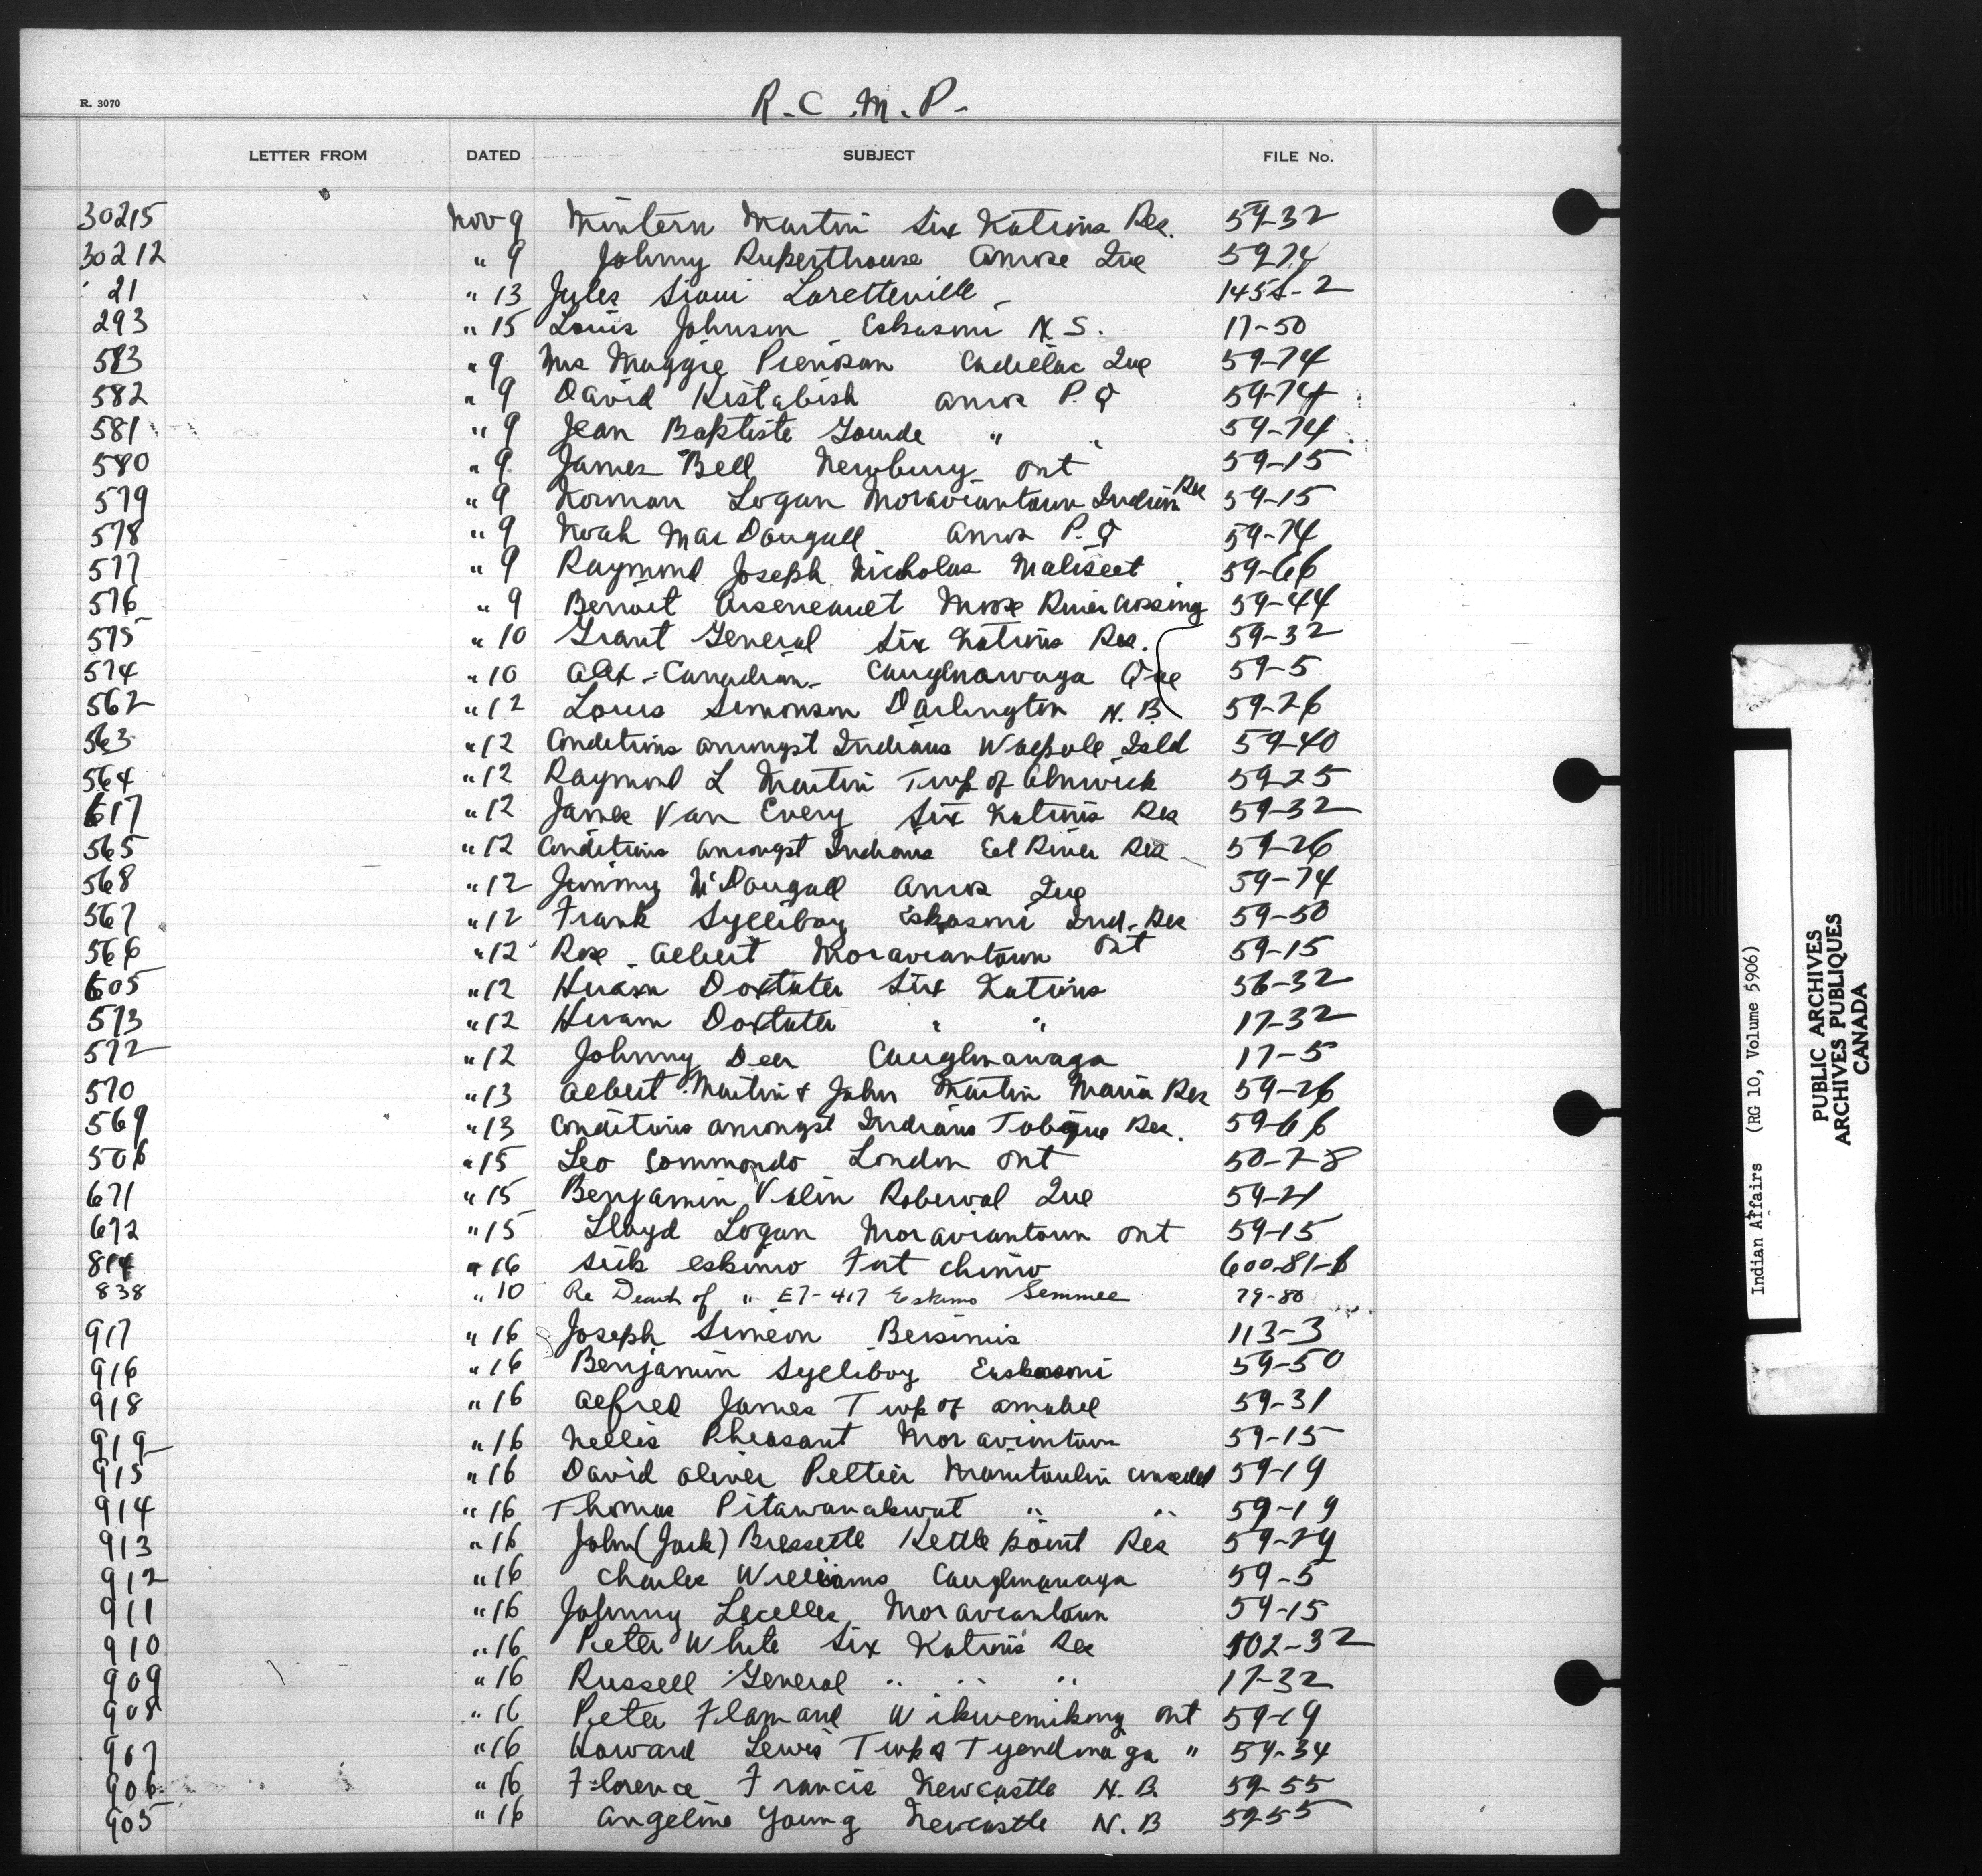 R. 3070
R.C.M.P.
LETTER FROM DATED SUBJECT FILE No.
30215 Nov 9 Mintern Martin Six Nations Res. 59-32
30212 " 9 Johnny Ruperthouse Amos Que 59-74
21 " 13 Jules Sioui Loretteville 1458-2
293 " 15 Louis Johnson Eskasoni N.S. 17-50
583 " 9 Mrs Maggie Pienisan Cadillac Que 59-74
582 " 9 David Kistabish Amos P.Q 59-74
581 " 9 Jean Baptiste Gourde " " 59-74
580 " 9 James Bell Newbury Ont 59-15
579 " 9 Norman Logan Moraviantown Indian Res 59-15
578 " 9 Noah MacDougall Amos P.Q 59-74
577 " 9 Raymond Joseph Nicholas Maliseet 59-66
576 " 9 Benoit Arseneault Moose River Crossing 59-44
575 " 10 Grant General Six Nations Res. 59-32
574 " 10 Alex Canadian Caughnawaga Que 59-5
562 " 12 Louis Simonson Darlington N.B. 59-26
563 " 12 Conditions amongst Indians Walpole Isld 59-40
564 " 12 Raymond L Martin Twp of Alnwick 59-25
617 " 12 James Van Every Six Nations Res 59-32
565 " 12 Conditions amongst Indians Eel River Res 59-26
568 " 12 Jimmy McDougall Amos Que 59-74
567 " 12 Frank Sylliboy Eskasoni Ind. Res 59-50
566 " 12 Roe Albert Moraviantown Ont 59-15
605 " 12 Hiram Doxtater Six Nations 56-32
573 " 12 Hiram Doxtater " " 17-32
572 " 12 Johnny Deer Caughnawaga 17-5
570 " 13 Albert Martin & John Martin Maria Res 59-26
569 " 13 Conditions amongst Indians Tobique Res. 59-66
506 " 15 Leo Commondo London Ont 50-7-8
671 " 15 Benjamin Valin Roberval Que 59-21
672 " 15 Lloyd Logan Moraviantown Ont 59-15
814 " 16 Sick Eskimo Fort Chimo 600-81-1
838 " 10 Re Death of " E7-417 Eskimo Semmee 79-80
917 " 16 Joseph Simeon Bersimis 113-3
916 " 16 Benjamin Sylliboy Eskasoni 59-50
918 " 16 Alfred James Twp of Amabel 59-31
919 " 16 Nellis Pheasant Moraviantown 59-15
915 " 16 David Oliver Peltier Manitoulin unceded 59-19
914 " 16 Thomas Pitawanakwat " " 59-19
913 " 16 John (Jack) Bressette Kettle Point Res 59-29
912 " 16 Charles Williams Caughnawaga 59-5
911 " 16 Johnny Lacelles Moraviantown 59-15
910 " 16 Peter White Six Nations Res 102-32
909 " 16 Russell General " " " 17-32
908 " 16 Peter Flamand Wikwemikong Ont 59-19
907 " 16 Howard Lewis Twp of Tyendinaga " 59-34
906 " 16 Florence Francis Newcastle N.B. 59-55
905 " 16 Angeline Young Newcastle N.B 59-55
Indian Affairs (RG 10, Volume 5906)
PUBLIC ARCHIVES
ARCHIVES PUBLIQUES
CANADA